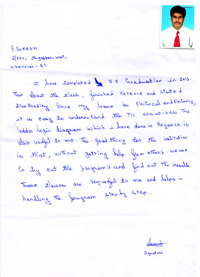 S. SURESH
Chennai - 87.
I have completed B.E. Graduation in 2013.
Then about the class, finished Keyence and started
Allen Bradley. Since my branch is Electrical and Electronics,
it is easy to understand the PLC operations. The
ladder logic diagram which is here done in Keyence is
also useful to me. The good thing for this institution
is that, without getting help from others we can
try out the programs and find out the results.
These classes are very useful to me and helps in
handling the program step by step.
Signature